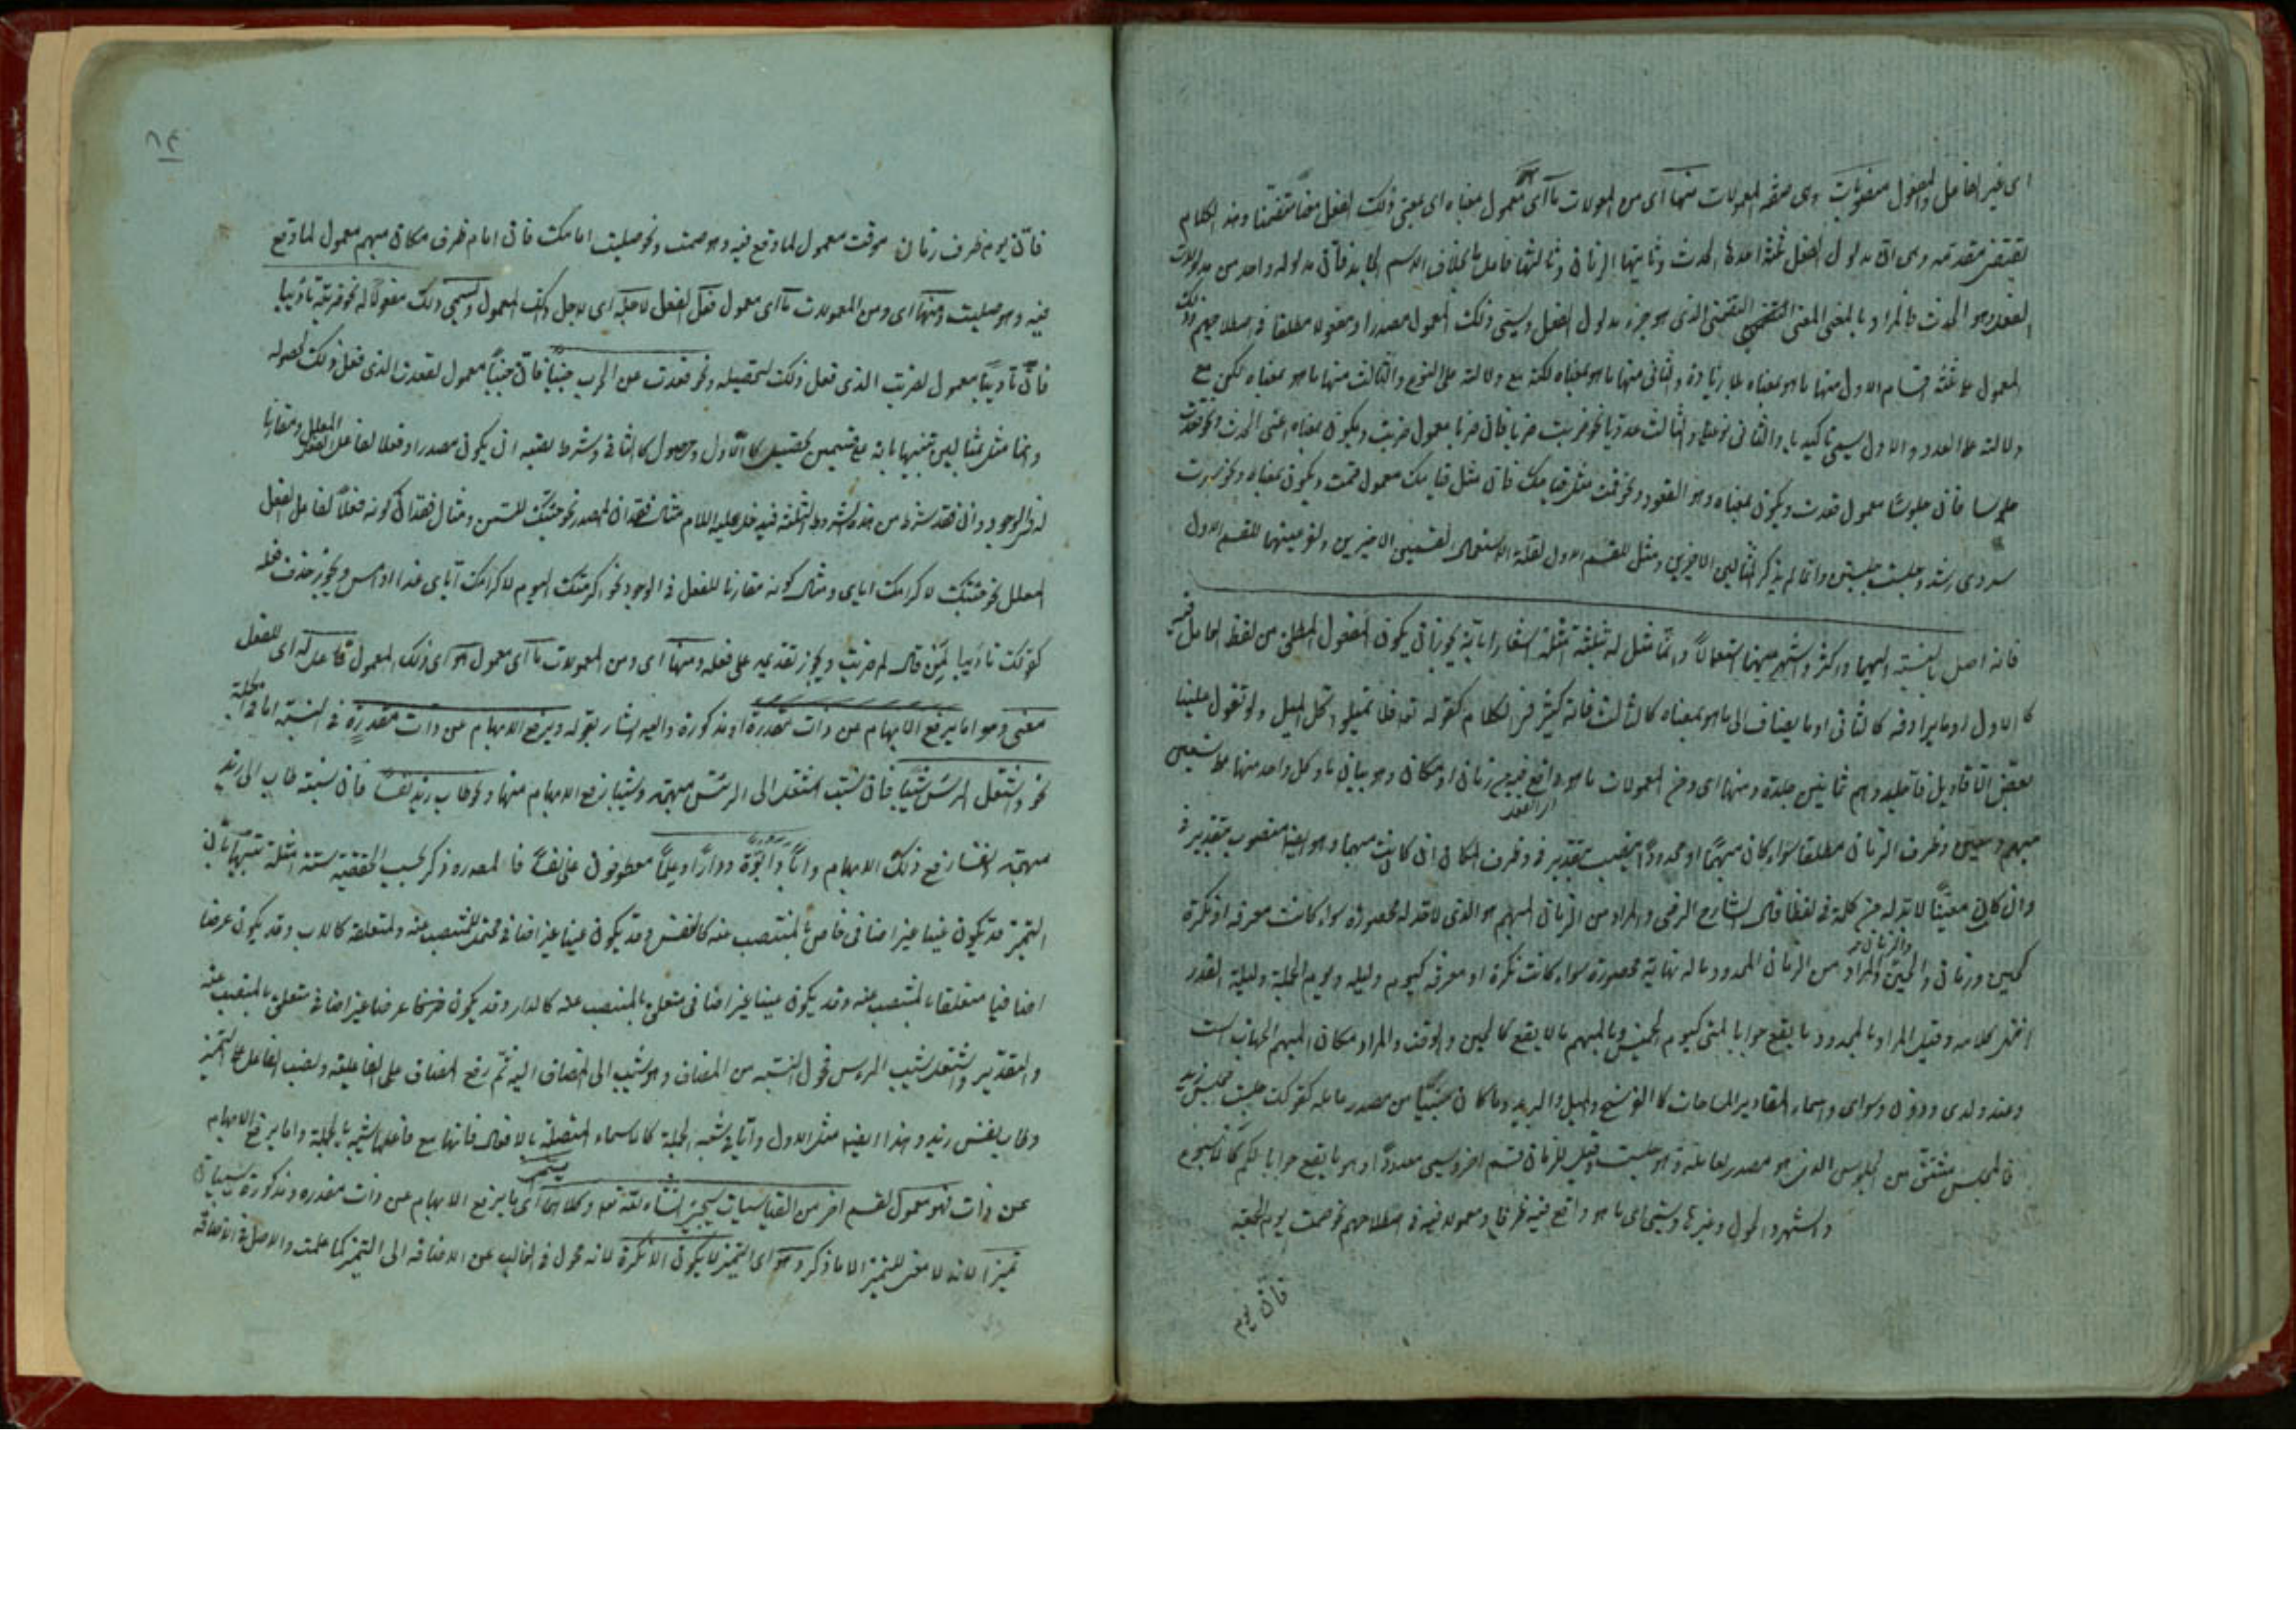 اى غير الفاعل والمفعول منصوبات وهى صفة المعمولات منها اى من المعمولات ما اى معمول هو معناه اى معنى ذلك الفعل تضمنا وهذا الكلام
يقتضى مقدمة وهى ان مدلول الفعل ثلثة احدها الحدث وثانيها الزمان وثالثها فاعل ما بخلاف الاسم فان مدلوله واحد من مدلولات
الفعل وهو الحدث فالمراد بالمعنى المعنى التضمنى الذى هو جزء مدلول الفعل ويسمى ذلك المعمول مصدرا ومفعولا مطلقا فى اصطلاحهم وذلك
المعمول على ثلثة اقسام الاول منها ما هو بمعناه بلا زيادة والثانى منها ما هو بمعناه لكنه مع دلالته على النوع والثالث منها ما هو بمعناه لكن مع
دلالته على العدد والاول يسمى تاكيديا والثانى نوعيا والثالث عدديا نحو ضربت ضربا فان ضربا معمول ضربت ويكون بمعناه اعنى الحدث ونحو قعدت
جلوسا فان جلوسا معمول قعدت ويكون بمعناه وهو القعود ونحو قمت مثل قيامك فان مثل قيامك معمول قمت ويكون بمعناه ونحو ضربت
وجلست جلستين وانما لم يذكر المثالين الاخيرين ومثل للقسم الاول لقلة الاستعمال لقسمين الاخيرين ولفرعيتهما للقسم الاول
فانه اصل بالنسبة اليهما واكثر واشهر منهما استعمالا وانما مثل له بثلثة امثلة اشعارا بانه يجوز ان يكون المفعول المطلق من لفظ العامل
كالاول او ما يرادفه كالثانى او ما يضاف الى ما هو بمعناه كالثالث فانه كثير فى الكلام كقوله تعالى فلا تميلوا كل الميل ولو تقول علينا
بعض الاقاويل فاجلدوهم ثمانين جلدة ومنها اى ومن المعمولات ما هو واقع فيه من زمان او مكان وهو بيان ما وكل واحد منها على قسمين
مبهم ومعين وظرف الزمان مطلقا سواء كان مبهما او محدودا ينصب بتقدير فى وظرف المكان ان كان مبهما وهو ايضا منصوب بتقدير فى
وان كان معينا لا بد له من كلمة فى لفظا قال الشارح الرضى والمراد من الزمان المبهم هو الذى لا حد له محصورة سواء كانت معرفة او نكرة
كحين وزمان والحين والزمان والمراد من الزمان المحدود ما له نهاية محصورة سواء كانت نكرة او معرفة كيوم وليلة ويوم الجمعة وليلة القدر
انتهى كلامه وقيل المراد بالمحدود ما يقع جوابا لمتى كيوم الخميس والمبهم ما لا يقع كالحين والوقت والمراد مكان المبهم الجهات الست
وعند ولدى ودون وسوى واسماء المقادير المساحات كالفرسخ والميل والبريد وما كان مشتقا من مصدر عامله كقولك جلست مجلس زيد
فالمجلس مشتق من الجلوس الذى هو مصدر لعامله وهو جلست وقيل للزمان قسم اخر وسمى معدودا وهو ما يقع جوابا لكم كالاسبوع
والشهر والحول وغيرها ويسمى اى ما هو واقع فيه ظرفا ومفعولا فيه فى اصطلاحهم نحو صمت يوم الجمعة
فان يوم
فان يوم ظرف زمان موقت معمول لما وقع فيه وهو صمت ونحو صليت امامك فان امام ظرف مكان مبهم معمول لما وقع
فيه وهو صليت ومنها اى ومن المعمولات ما اى معمول فعل الفعل لاجله اى لاجل ذلك المعمول ويسمى ذلك مفعولا له نحو ضربته تاديبا
فان تاديبا معمول لضربت الذى فعل ذلك لتحصيله ونحو قعدت عن الحرب جبنا فان جبنا معمول لقعدت الذى فعل ذلك لحصوله
وانما مثل بمثالين تنبيها بانه على قسمين تحصيل كالاول وحصول كالثانى وشرط نصبه ان يكون مصدرا وفعلا لفاعل الفعل المعلل ومقارنا
له فى الوجود وان فقد شرط من هذه الشروط الثلثة فيدخل عليه اللام مثال فقدان المصدر نحو جئتك للسمن ومثال فقدان كونه فعلا لفاعل الفعل
المعلل نحو جئتك لاكرامك اياى ومثال كونه مقارنا للفعل فى الوجود نحو اكرمتك اليوم لاكرامك اياى غدا او امس ويجوز حذف فعله
كقولك تاديبا لمن قال لم ضربت ويجوز تقديمه على فعله ومنها اى ومن المعمولات ما اى معمول هو اى ذلك المعمول فاعل له اى للفعل
معنى وهو اما يرفع الابهام عن ذات مقدرة او مذكورة واليه اشار بقوله ويرفع الابهام عن ذات مقدرة فى النسبة اما فى الجملة
نحو واشتعل الراس شيبا فان نسبت اشتعل الى الراس مبهمة وشيبا رفع الابهام منها ونحو طاب زيد نفسا فان نسبة طاب الى زيد
مبهمة نفسا رفع ذلك الابهام وابا وابوة ودارا وعلما معطوفون على نفسا فالمصدر ذكر بحسب الحقيقة ستة امثلة تنبيها بان
التميز قد يكون عينا غير اضافى خاص بالمنتصب عنه كالنفس وقد يكون عينا غير اضافى محتمل للمنتصب عنه ولمتعلقه كالاب وقد يكون عرضا
اضافيا متعلقا بالمنتصب عنه وقد يكون عينا غير اضافى متعلق بالمنتصب عنه كالدار وقد يكون عرضا غير اضافى متعلق بالمنتصب عنه
والتقدير واشتعل شيب الراس فحول النسبة من المضاف وهو شيب الى المضاف اليه ثم رفع المضاف على الفاعلية ونصب الفاعل على التميز
وطاب نفس زيد وهذا ايضا مثل الاول واما فى شبه الجملة كالاسماء المتصلة بالافعال فانها مع فاعلها شبيه بالجملة واما يرفع الابهام
عن ذات فهو معمول لقسم اخر من القياسيات سيجئ انشاء الله تعالى وكلاهما اى ما يرفع الابهام عن ذات مقدرة ومذكورة يسميان
تميزا لانه لا معنى للتميز الا ما ذكر وهو اى التميز لا يكون الا نكرة لانه محول فى الغالب عن الاضافة الى التميز كما علمت والاصل فى الاضافة